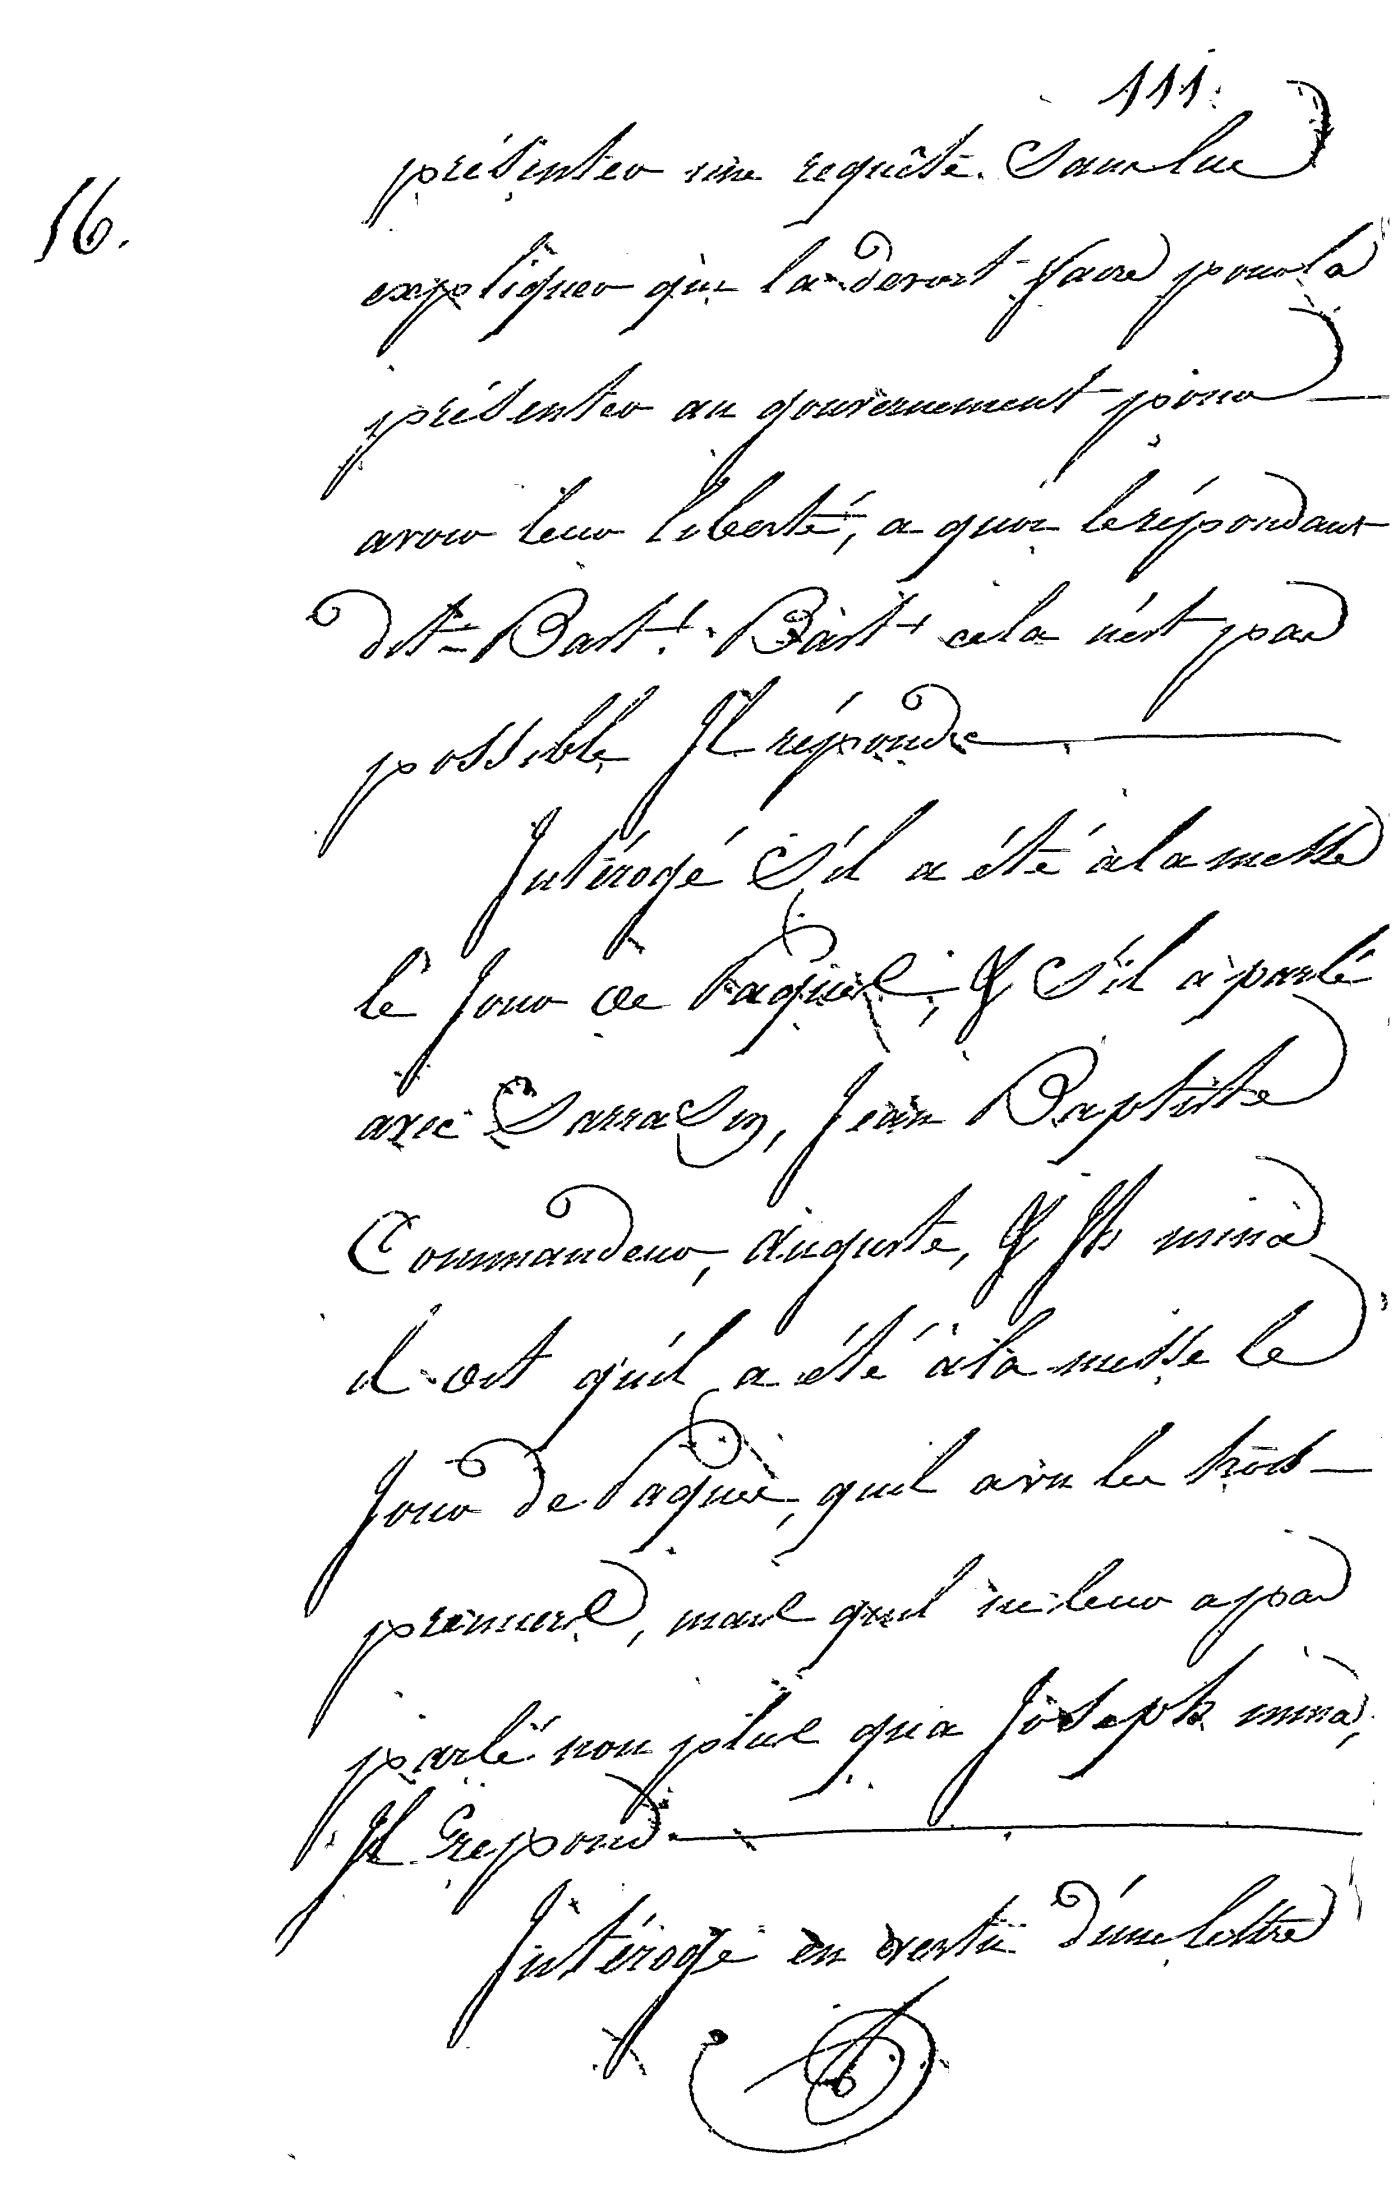 111.
16.
présenter une requête. Sans lui
expliquer qui la devoit faire pour la
présenter au gouvernement pour
avoir leur liberté, a quoi le répondant
dit Bast. Bast cela n'est pas
possible Il réponde
Intérogé S'il a été à la messe
le Jour de Paques, & S'il a parlé
avec SarraSin, Jean Baptiste
Commandeur, auguste, & Jh mina
il dit qu'il a été à la messe le
Jour de Paques, quil a vu les trois
premiers, mais quil ne leur a pas
parlé non plus qu'a Joseph mina,
Il repond
Intérogé en vertu d'une lettre